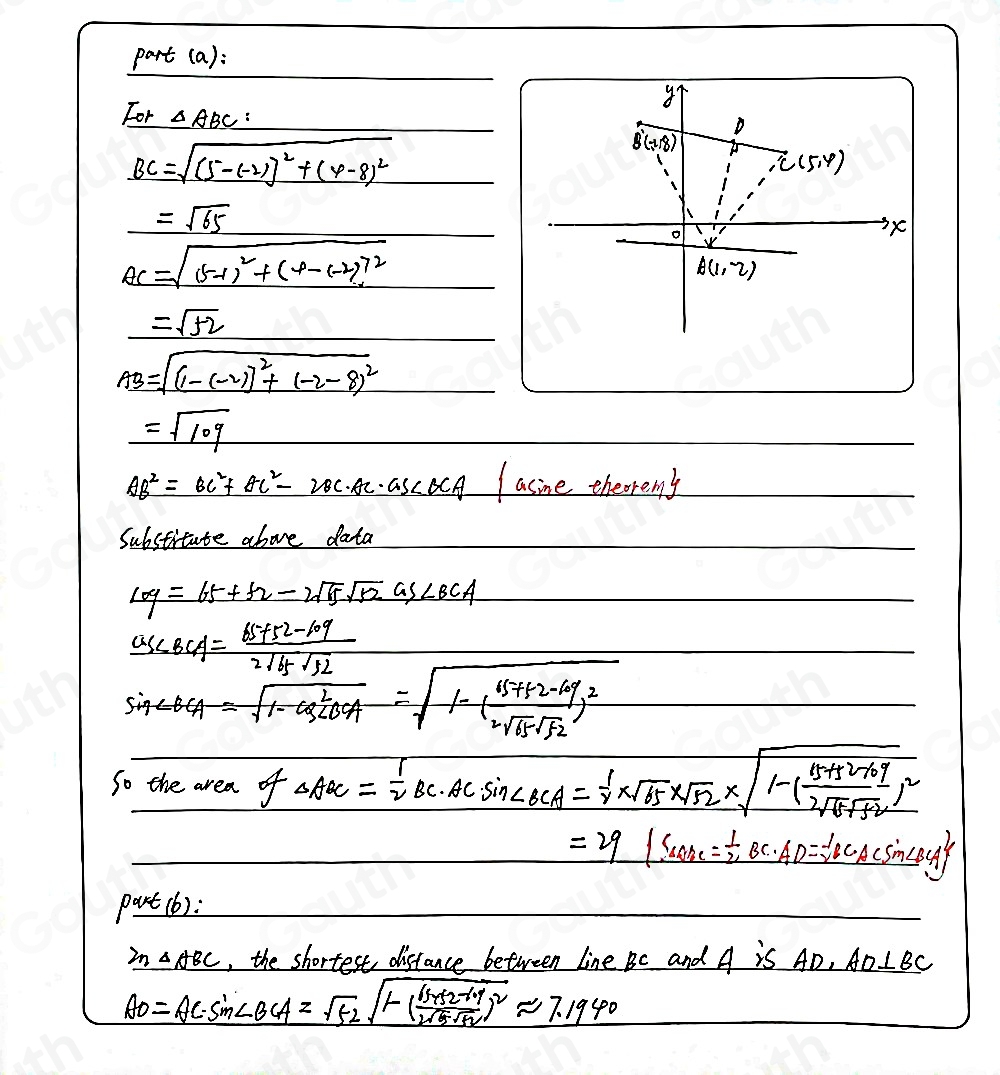 part (a):
For △ABC:
BC = √([5-(-2)]² + (4-8)²)
= √65
AC = √((5-1)² + (4-(-2))²)
= √52
AB = √([1-(-2)]² + (-2-8)²)
= √109
AB² = BC² + AC² - 2BC·AC·cos∠BCA {cosine theorem}
Substitute above data
109 = 65+52-2√65√52 cos∠BCA
cos∠BCA = (65+52-109)/(2√65√52)
sin∠BCA = √(1-cos²∠BCA) = √(1-((65+52-109)/(2√65√52))²)
So the area of △ABC = 1/2 BC·AC·sin∠BCA = 1/2×√65×√52×√(1-((65+52-109)/(2√65√52))²)
= 29 {S△ABC = 1/2 BC·AD = 1/2 BC·AC sin∠BCA}
part (b):
In △ABC, the shortest distance between line BC and A is AD, AD⊥BC
AD = AC·sin∠BCA = √52 √(1-((65+52-109)/(2√65√52))²) ≈ 7.1940
y
B(-2,8)
D
C(5,4)
x
0
A(1,-2)
Gauth